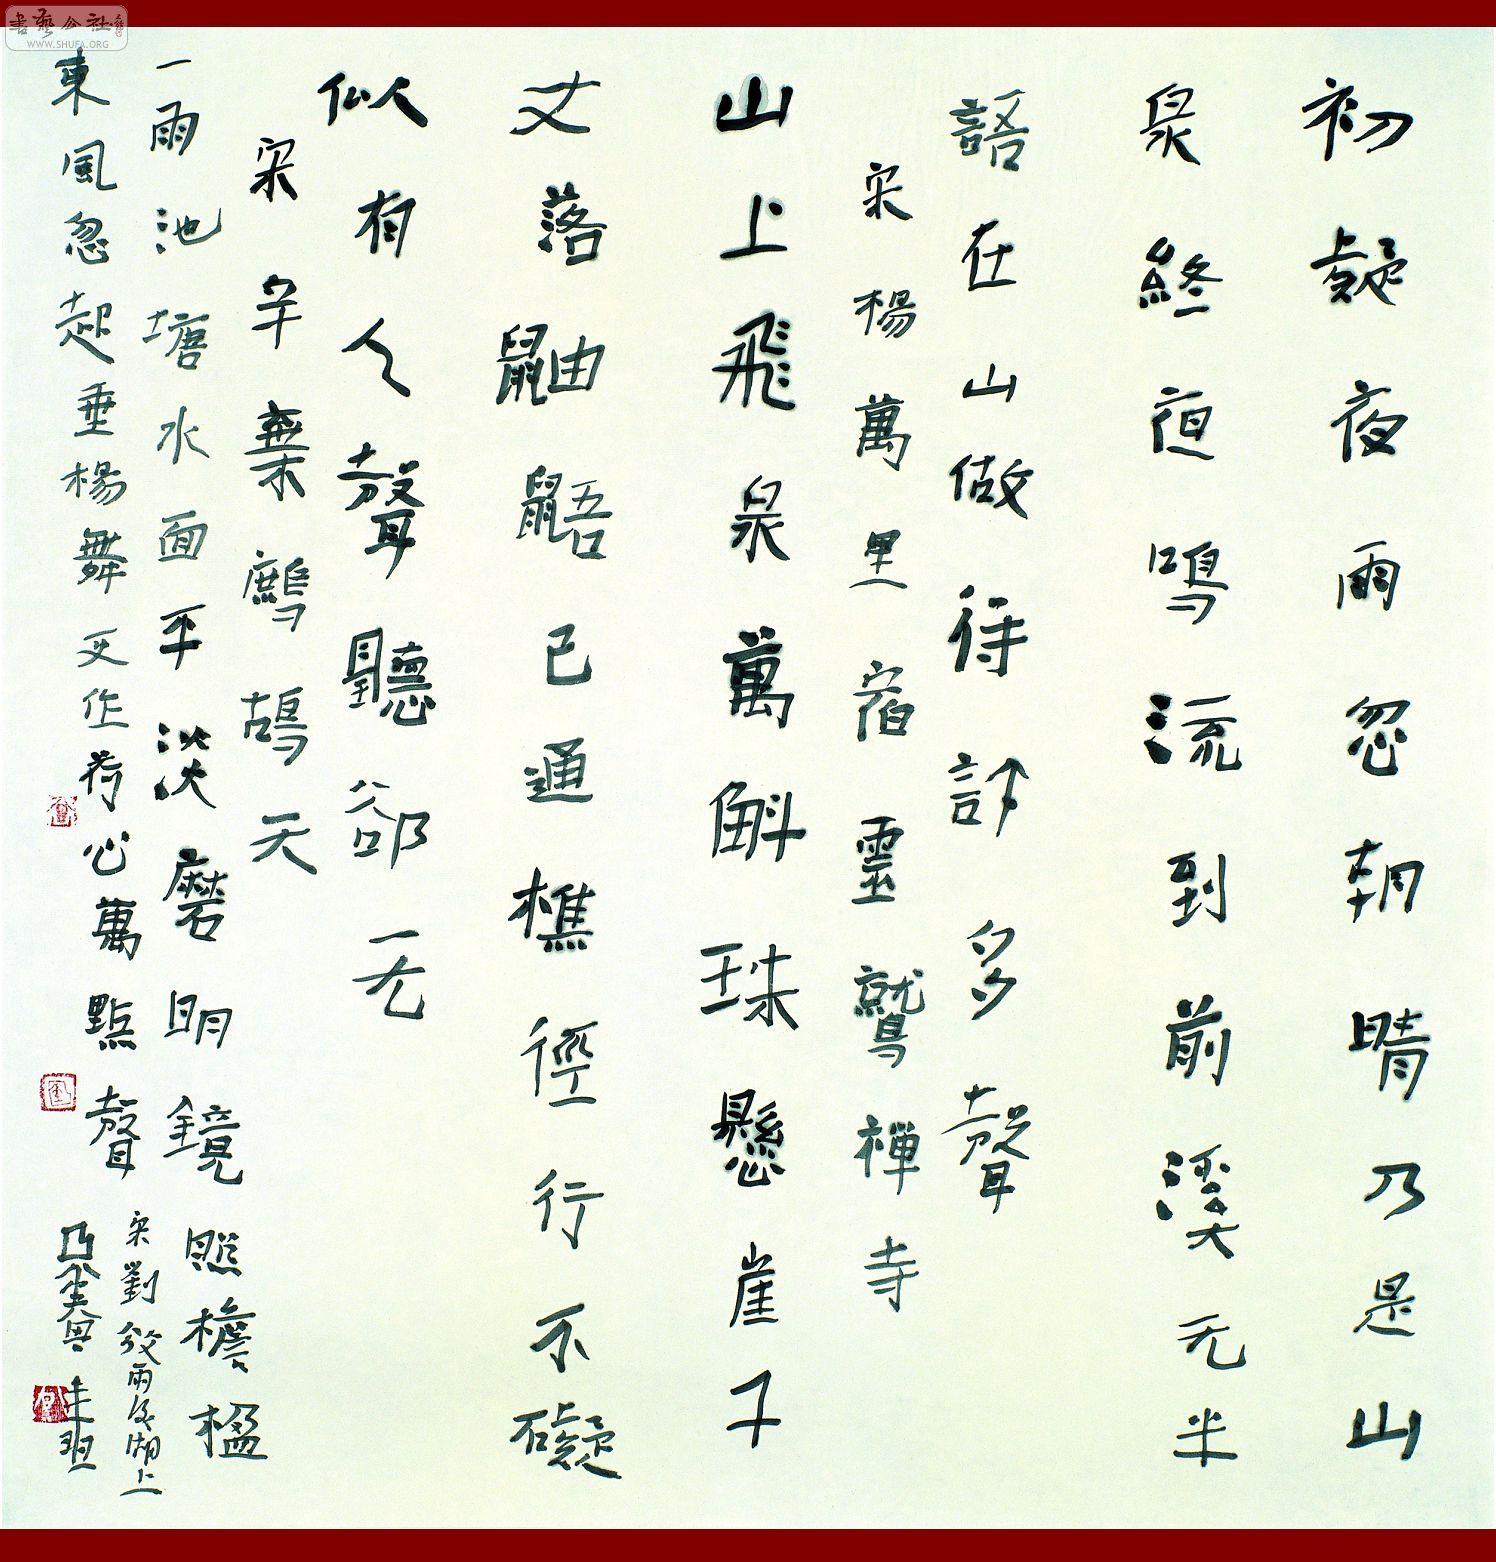 書藝公社
WWW.SHUFA.ORG
初疑夜雨忽朝晴乃是山
泉終夜鳴流到前溪无半
語在山做得許多聲
宋楊萬里宿靈鷲禪寺
山上飛泉萬斛珠懸崖千
丈落鼬鼯已通樵徑行不礙
似有人聲聽卻无
宋辛棄鷓鴣天
一雨池塘水面平淡磨明鏡照檐楹
東風忽起垂楊舞更作荷心萬點聲
宋劉攽雨後湖上